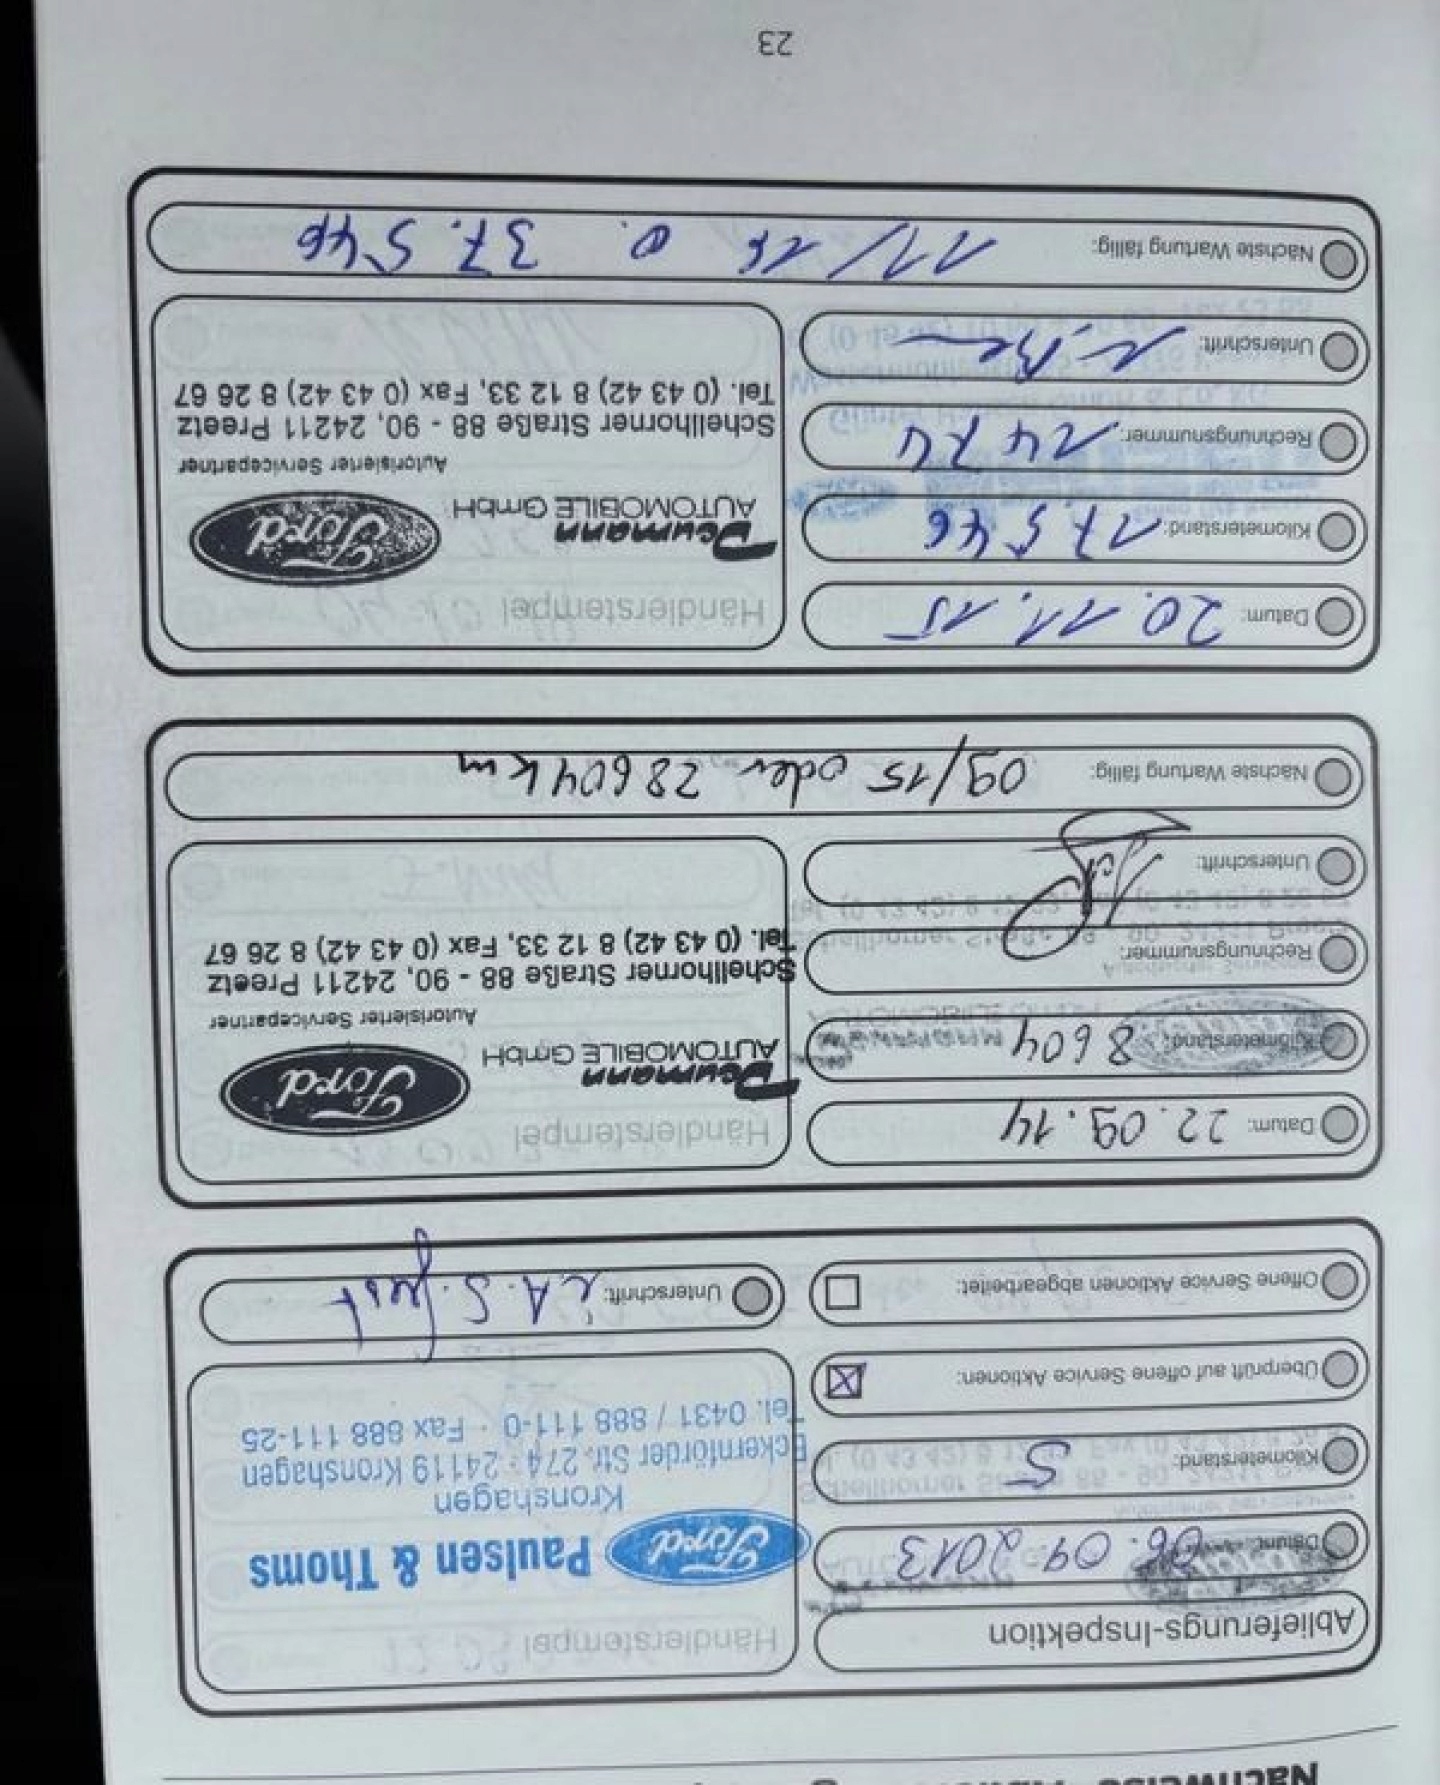 Ablieferungs-Inspektion
Datum: 06.09.2013
Kilometerstand: 5
Überprüft auf offene Service Aktionen:
Offene Service Aktionen abgearbeitet:
Händlerstempel
Ford Paulsen & Thoms
Kronshagen
Eckernförder Str. 274 · 24119 Kronshagen
Tel. 0431 / 888 111-0 · Fax 888 111-25
Unterschrift:
Datum: 22.09.14
Kilometerstand: 8604
Rechnungsnummer:
Unterschrift:
Händlerstempel
Deumann
AUTOMOBILE GmbH
Ford
Autorisierter Servicepartner
Schellhorner Straße 88 - 90, 24211 Preetz
Tel. (0 43 42) 8 12 33, Fax (0 43 42) 8 26 67
Nächste Wartung fällig: 09/15 oder 28604 km
Datum: 20.11.15
Kilometerstand: 17546
Rechnungsnummer: 12474
Unterschrift:
Händlerstempel
Deumann
AUTOMOBILE GmbH
Ford
Autorisierter Servicepartner
Schellhorner Straße 88 - 90, 24211 Preetz
Tel. (0 43 42) 8 12 33, Fax (0 43 42) 8 26 67
Nächste Wartung fällig: 11/16 o. 37.546
23